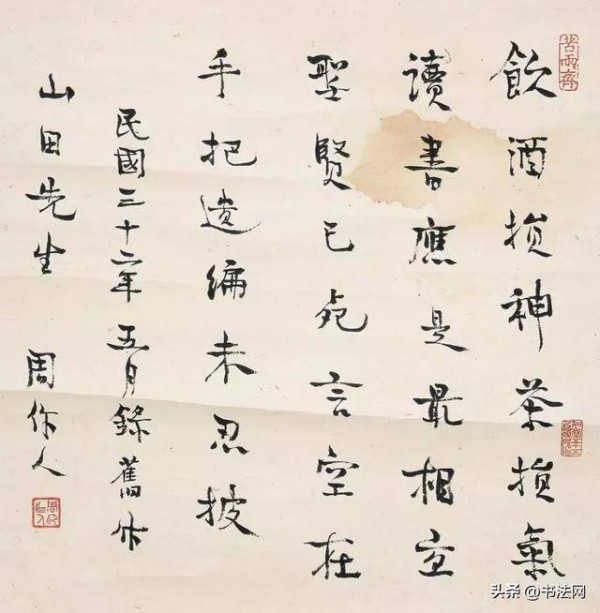 飲酒損神茶損氣
讀書應是最相宜
聖賢已死言空在
手把遺編未忍披
民國三十二年五月錄舊作
山田先生 周作人
苦雨齋
头条 @书法网